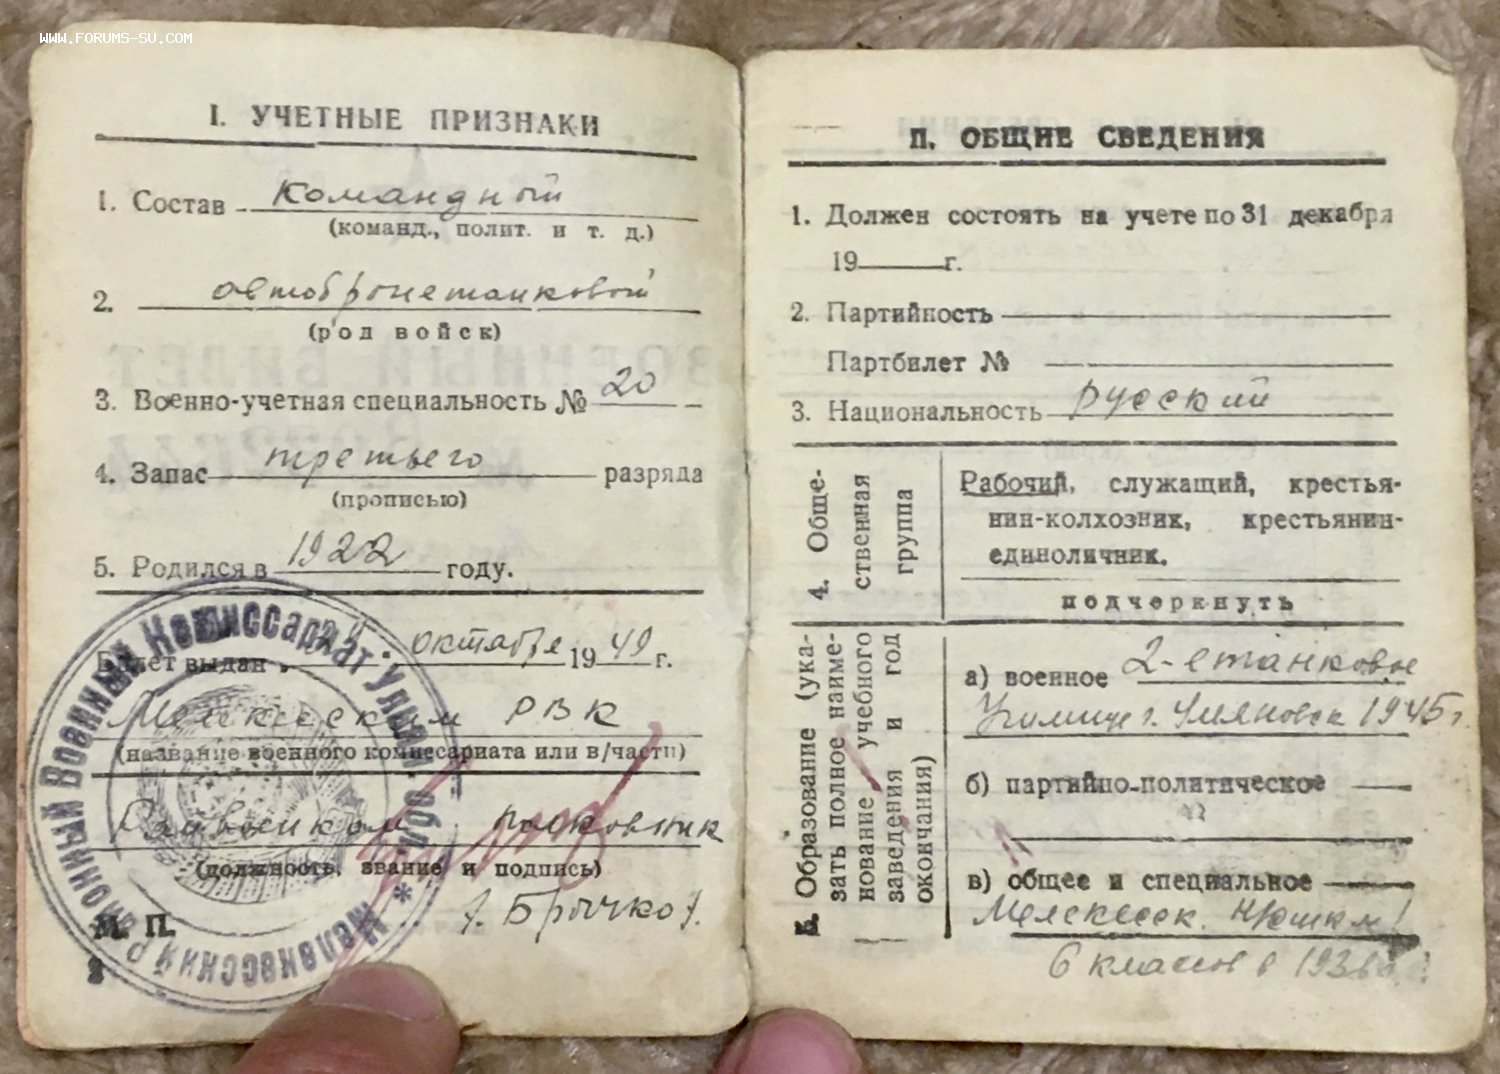 WWW.FORUMS-SU.COM
I. УЧЕТНЫЕ ПРИЗНАКИ
1. Состав командный
(команд., полит. и т. д.)
2. автобронетанковой
(род войск)
3. Военно-учетная специальность № 20
4. Запас третьего разряда
(прописью)
5. Родился в 1922 году.
Билет выдан октября 1949 г.
Мелекесским РВК
(название военного комиссариата или в/части)
Райвоенком подковник
(должность, звание и подпись)
/Брычко/.
М. П.
Районный Военный Комиссариат Ульян. обл. * Мелекесский
II. ОБЩИЕ СВЕДЕНИЯ
1. Должен состоять на учете по 31 декабря
19 г.
2. Партийность
Партбилет №
3. Национальность русский
4. Обще-
ственная
группа
Рабочий, служащий, крестья-
нин-колхозник, крестьянин-
единоличник.
подчеркнуть
5. Образование (ука-
зать полное наиме-
нование учебного
заведения и год
окончания)
а) военное 2-е танковое
Училище г. Ульяновск 1945 г.
б) партийно-политическое
в) общее и специальное
Мелекесск.
6 классов в